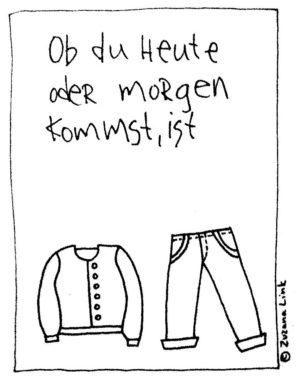 Ob du Heute
odeR moRgen
kommst, ist
© Zuzana Link